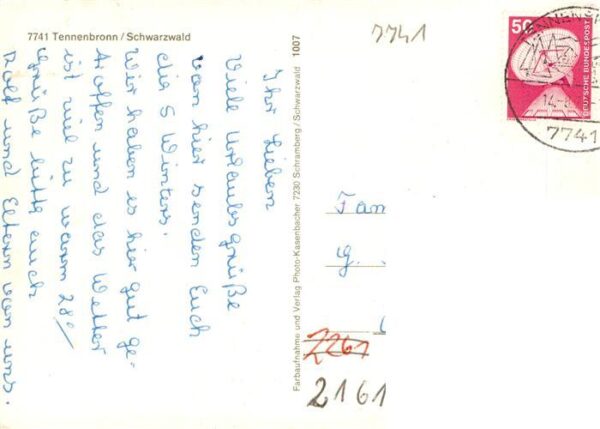 7741 Tennenbronn / Schwarzwald
Ihr Lieben
Viele Urlaubsgrüße
von hier senden Euch
die 5 Winters.
Wir haben es hier gut ge-
troffen und das Wetter
ist viel zu warm 28°
Grüße bitte auch
Rolf und Eltern von uns.
1007
Farbaufnahme und Verlag Photo-Kasenbacher 7230 Schramberg / Schwarzwald
7741
50
DEUTSCHE BUNDESPOST
7741
Fam
G.
2261
2161